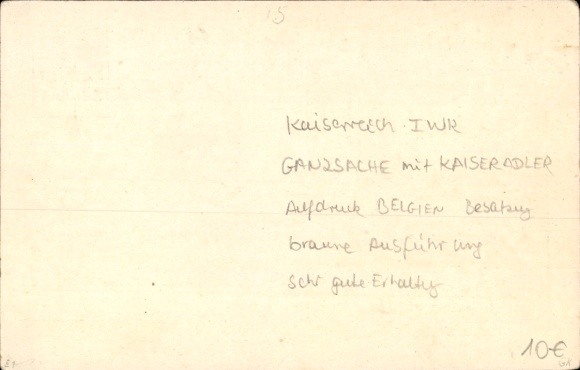 15
Kaiserreich. IWK
GANZSACHE mit KAISERADLER
Aufdruck BELGIEN Besatzung
braune Ausführung
sehr gute Erhaltung
10€